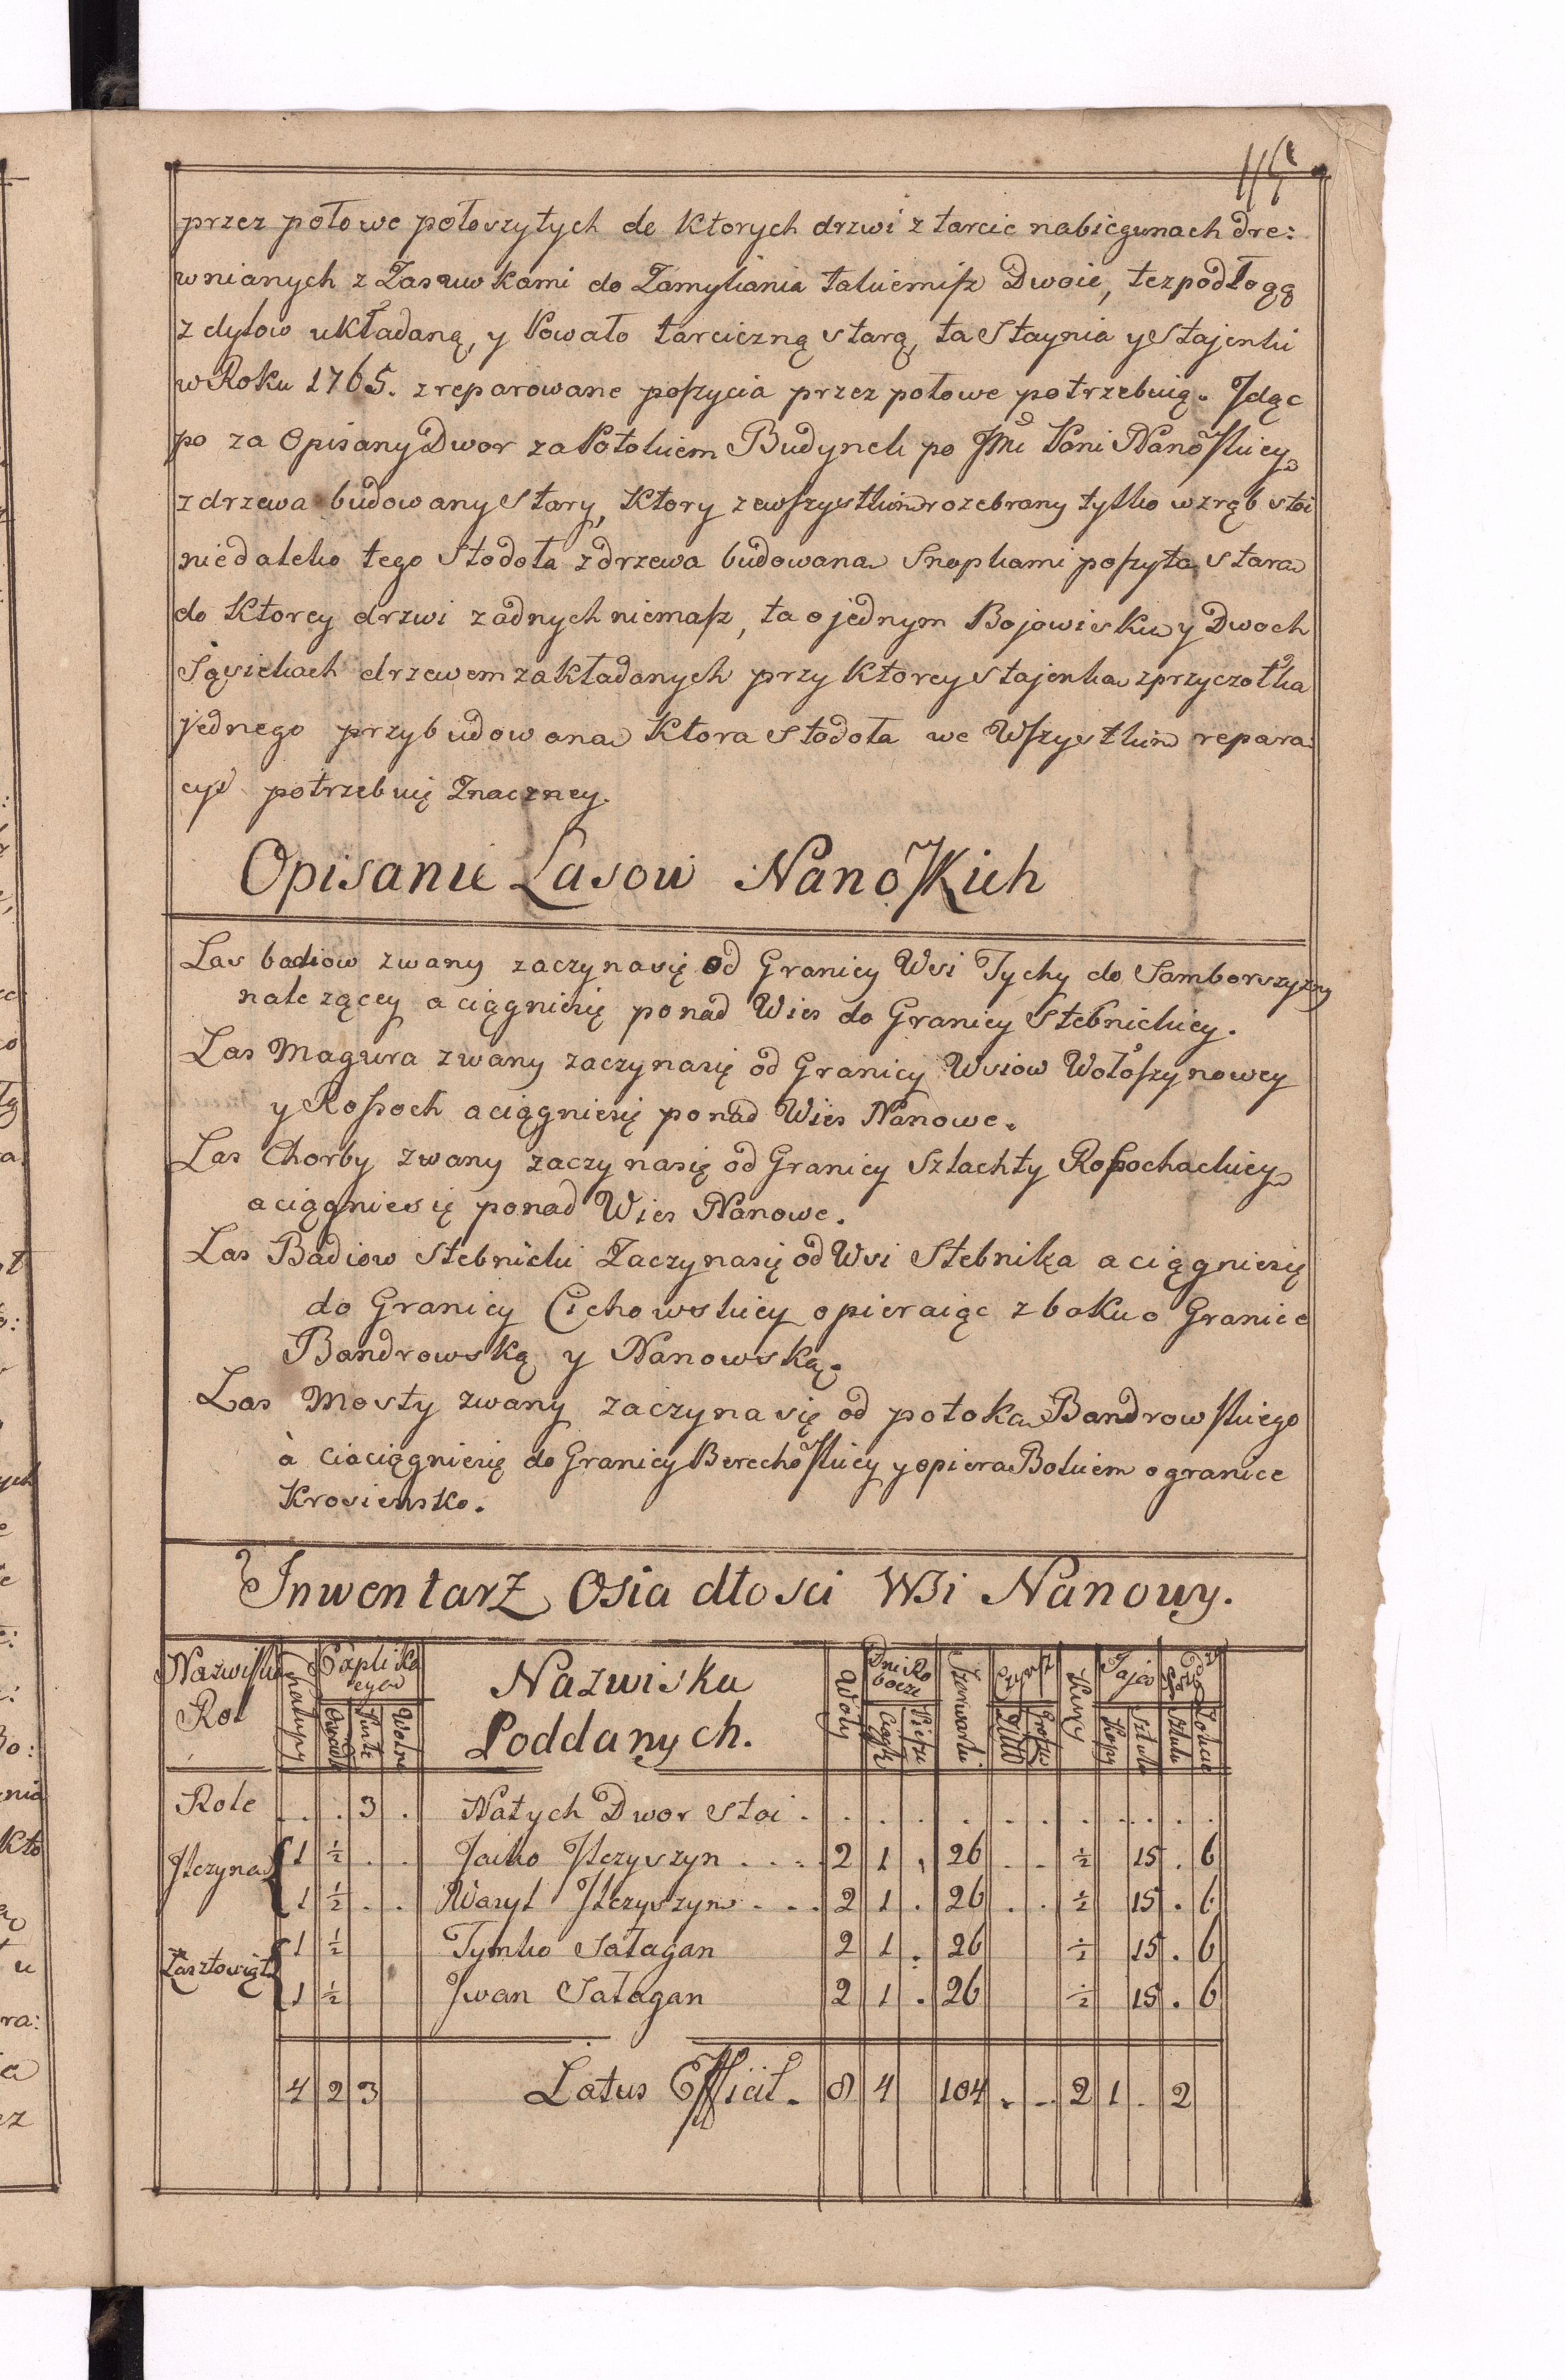 przez połowe połoszytych do ktorych drzwi z tarcic nabiegunach dre:
wnianych z Zasuwkami do Zamykania takiemisz Dwoie, tez podłogą
z dylow układaną, y Powało tarciczną starą, ta Staynia y Stajenki
w Roku 1765. zreparowane poszycia przez połowe potrzebuią. Jdąc
po za Opisany Dwor za Potokiem Budynek po Jmci Pani Nanoskiey
z drzewa budowany Stary, Ktory zewszystkim rozebrany tylko wzrąb stoi
niedaleko tego Stodoła zdrzewa budowana Snopkami poszyta stara
do Ktorey drzwi zadnych niemasz, ta o jednym Bojowisku y Dwoch
Sąsiekach drzewem zakładanych przy Ktorey Stajenka zprzyczołka
jednego przybudowana Ktora Stodoła we Wszystkim repara:
cyi potrzebuię Znaczney.
Opisanie Lasow Nanoskich
Las badiow zwany zaczyna się od Granicy Wsi Tychy do Samborszyzny
nalezącey a ciągnie się ponad Wies do Granicy Stebnickiey.
Las Magura zwany zaczyna się od Granicy Wsiow Wołoszynowey
y Rosoch a ciągnie się ponad Wies Nanowe.
Las Chorby zwany zaczyna się od Granicy Szlachty Rosochackiey
a ciągnie się ponad Wies Nanowe.
Las Badiow Stebnicki Zaczyna się od Wsi Stebnika a ciągnie się
do Granicy Cichowskiey opieraiąc z boku o Granice
Bandrowską y Nanowską.
Las Mosty zwany zaczyna się od potoka Bandrowskiego
à ciaciągnie się do Granicy Berechoskiey y opiera Bokiem o granice
Krosiensko.
Inwentarz Osiadłosci Wsi Nanowy.
Nazwiska Rol Chałupy Explikacya Puste Wolne Nazwiska Poddanych. Woły Dni Robocze Ciągłe Piesze Szarwarki Czynsz Złote Grosze Kury Jaja Kopy Sztuki Sztuki
Role . . . 3 . Natych Dwor Stoi . . . . . . . . . . . .
Ilczyna 1 ½ . . Jacko Ilczyszyn . . . . 2 1 . 26 . . ½ 15 . 6
1 ½ . . Wasyl Ilczyszyn . . . 2 1 . 26 . . ½ 15 . 6
1 ½ Tymko Sałagan 2 1 . 26 ½ 15 . 6
1 ½ Jwan Sałagan 2 1 . 26 ½ 15 . 6
4 2 3 Latus Efficit. 8 4 104 . . 2 1 . 2